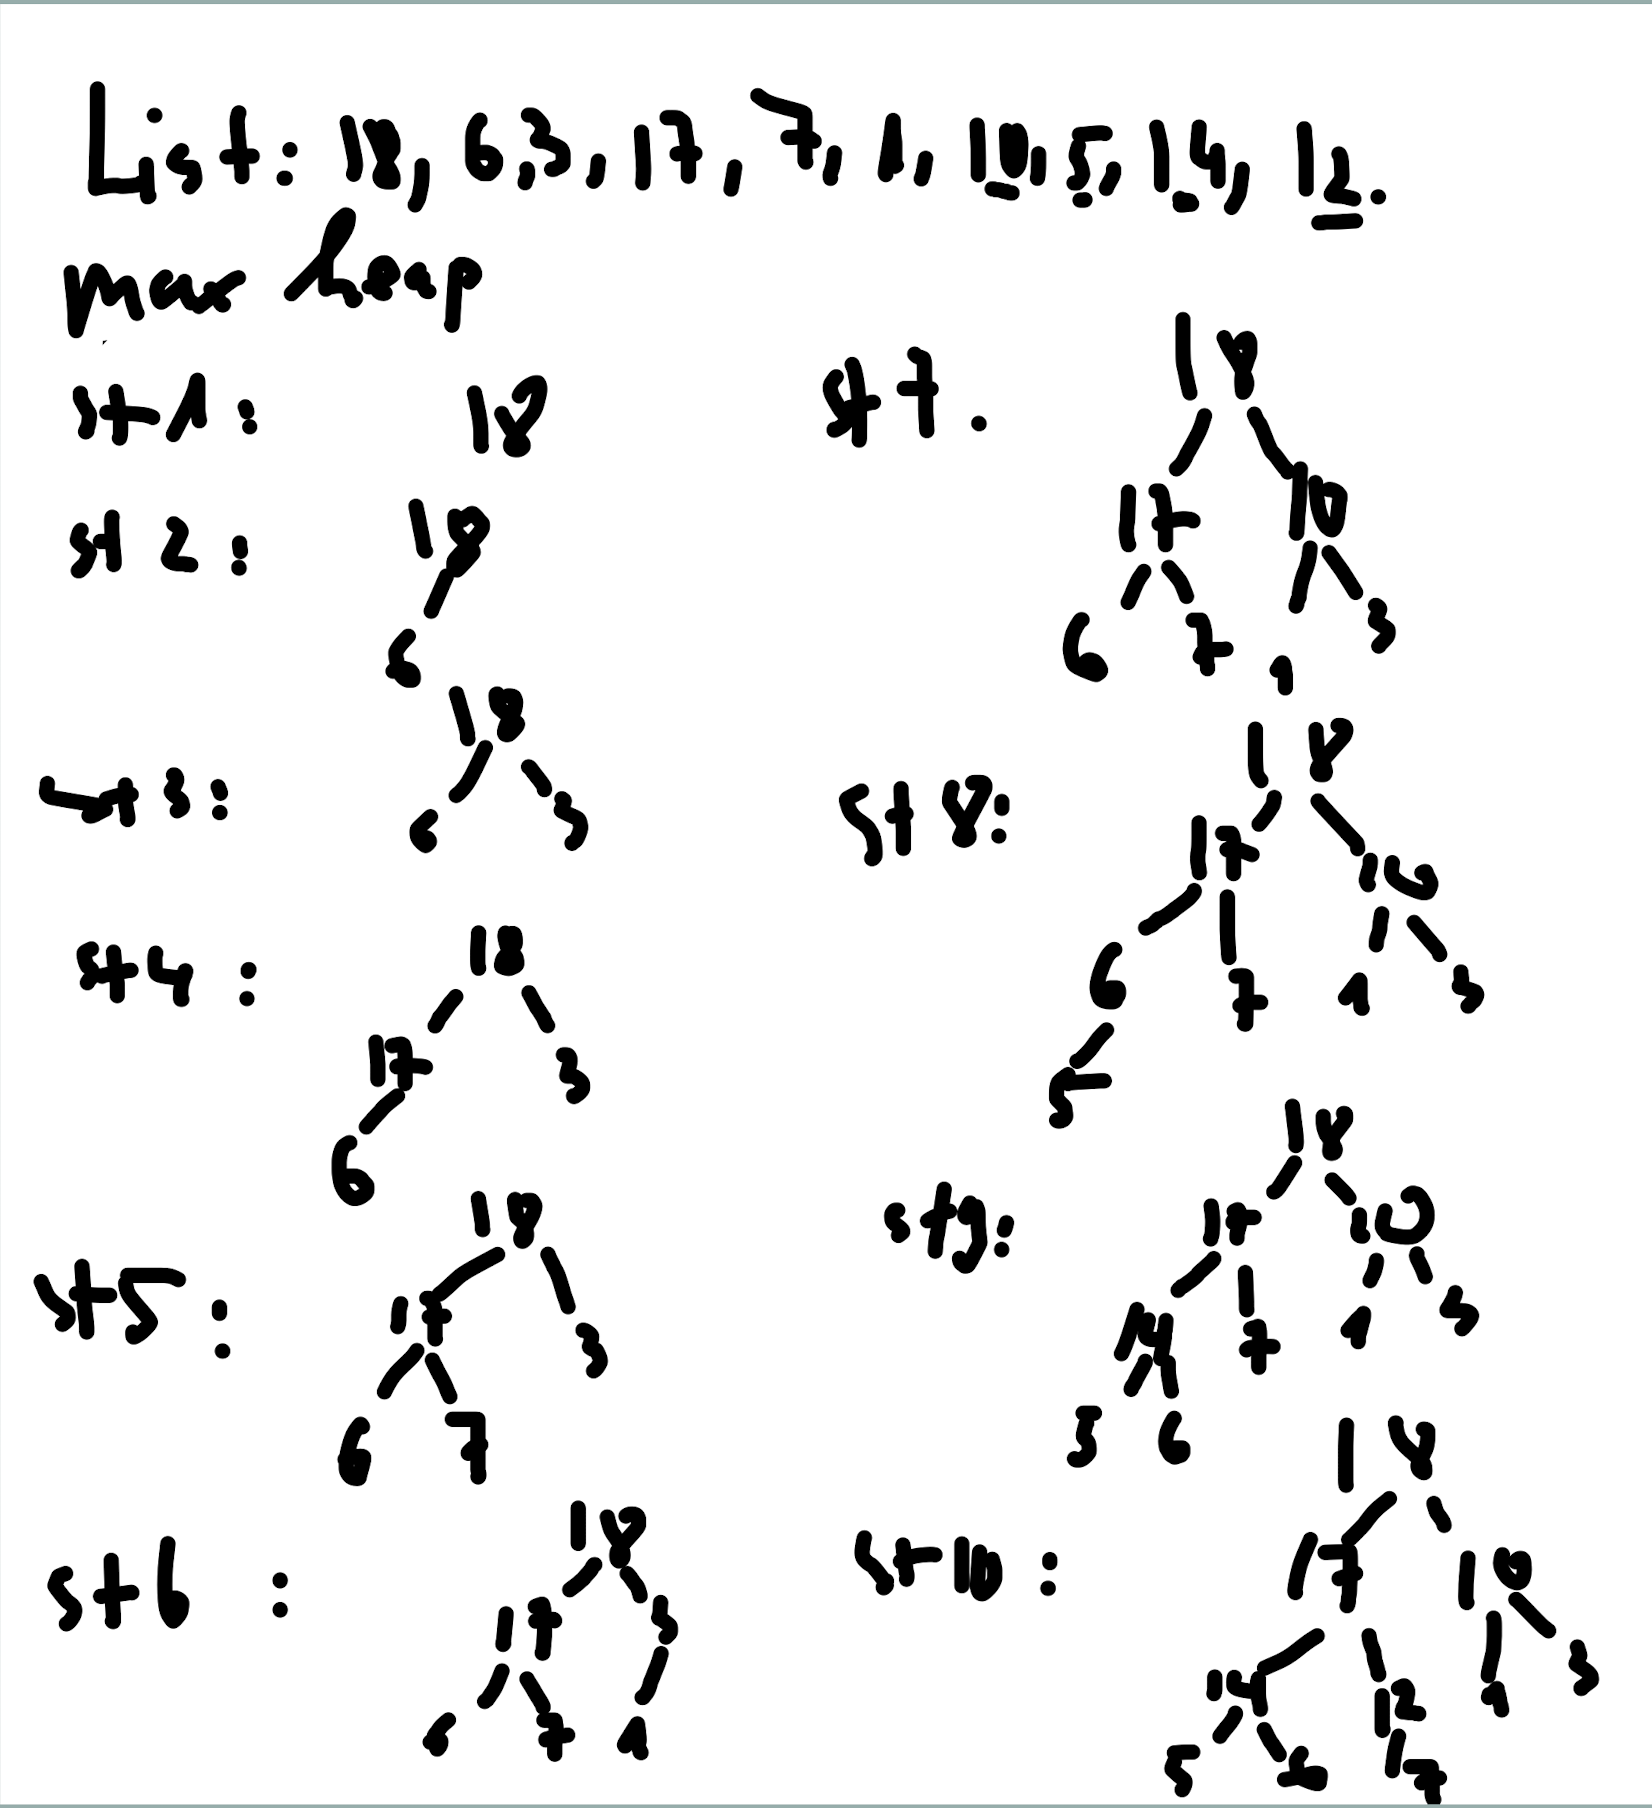 List: 18, 6,3, 17, 7, 1, 10, 5, 14, 12.
max heap
st1:
18
st 2:
18
6
st3:
18
6 3
st4 :
18
17 3
6
st5 :
18
17 3
6 7
st6 :
18
17 3
6 7 1
st 7.
18
17 10
6 7 1 3
st 8:
18
17 10
6 7 1 3
5
st9:
18
17 10
14 7 1 3
5 6
st10 :
18
17 10
14 12 1 3
5 6 7